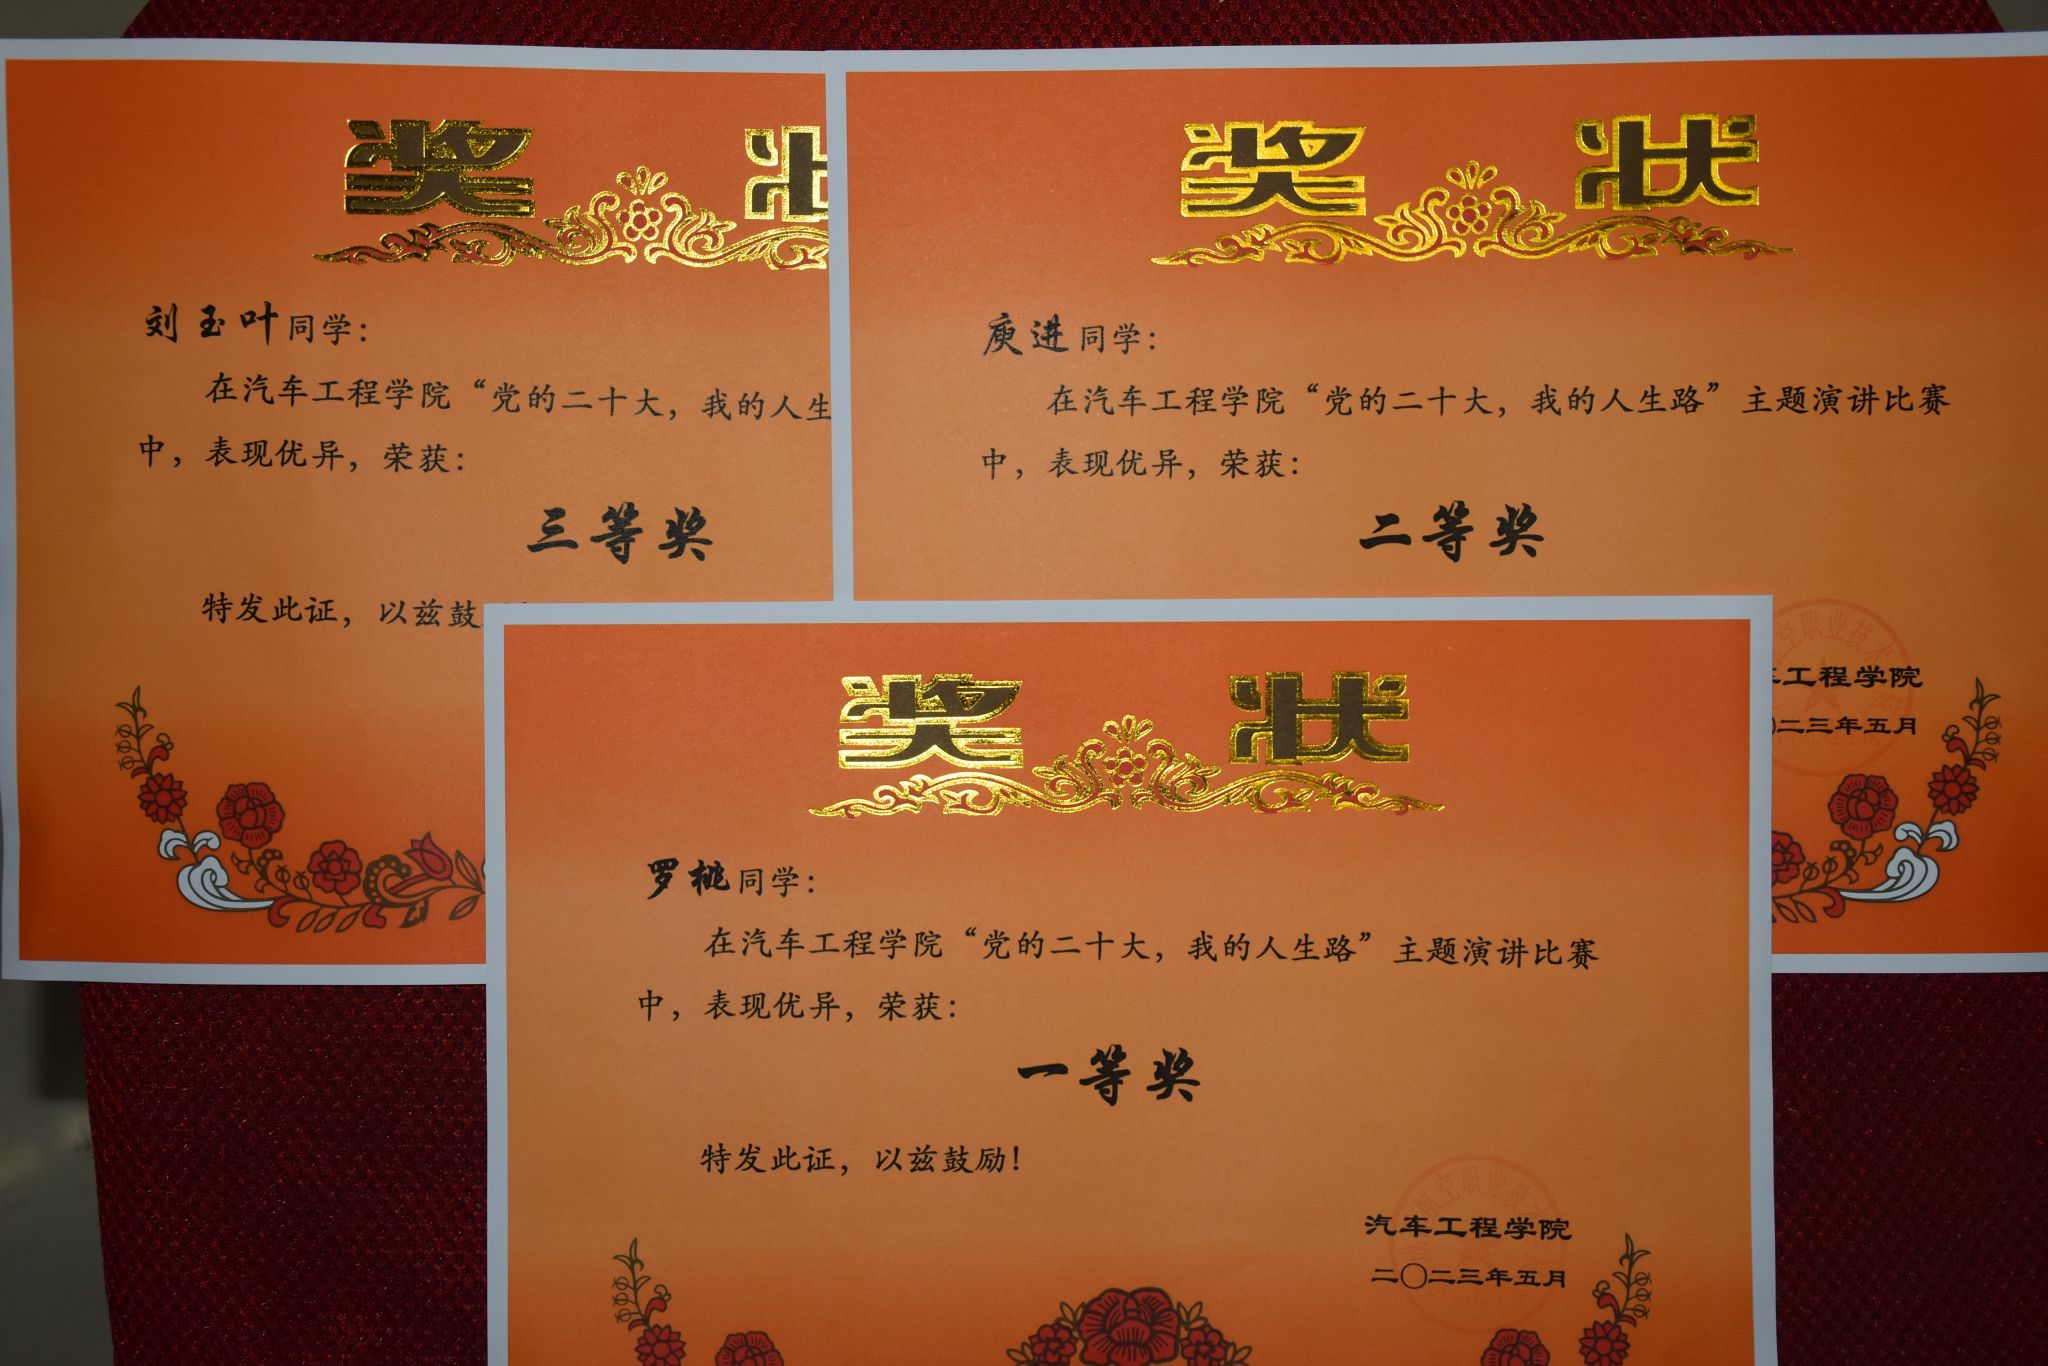 奖 状
刘玉叶同学：
在汽车工程学院“党的二十大，我的人生
中，表现优异，荣获：
三等奖
特发此证，以兹鼓
奖 状
庾进同学：
在汽车工程学院“党的二十大，我的人生路”主题演讲比赛
中，表现优异，荣获：
二等奖
空职业技术
工程学院
二三年五月
奖 状
罗桃同学：
在汽车工程学院“党的二十大，我的人生路”主题演讲比赛
中，表现优异，荣获：
一等奖
特发此证，以兹鼓励！
空职业技
汽车工程学院
二〇二三年五月